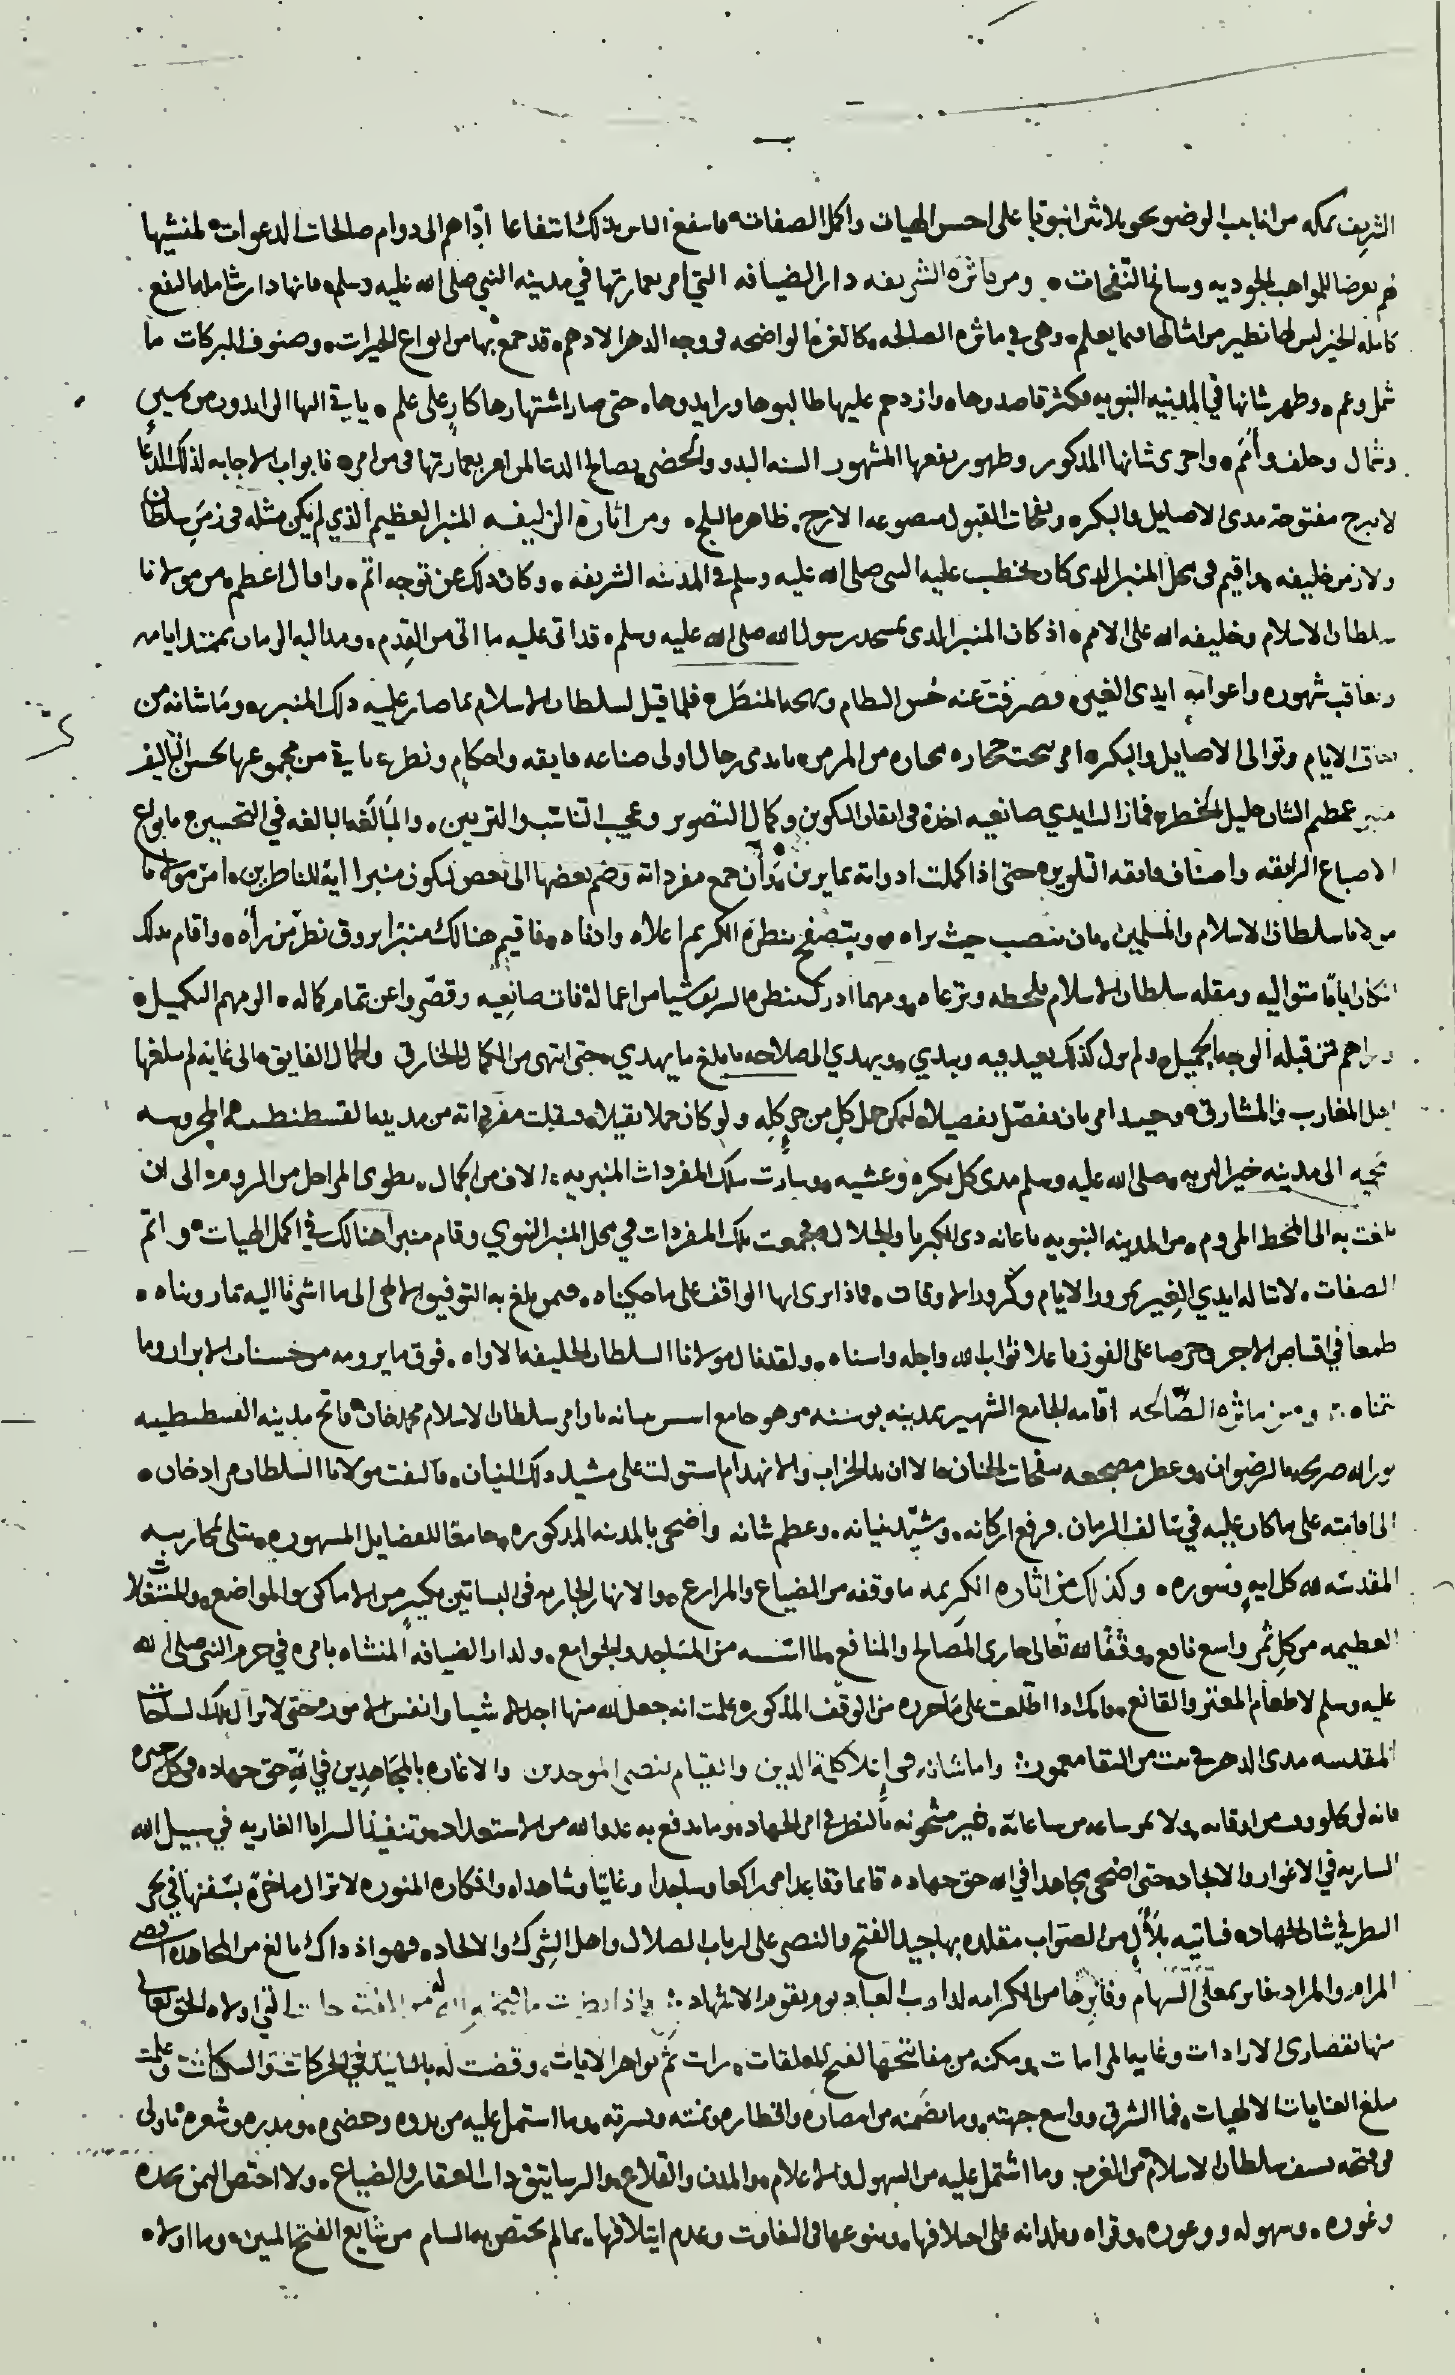 الشريف بمكه من انابيب الوضو نحو ثلاثين انبوبا على احسن الهيات واكمل الصفات فانتفع الناس بذلك انتفاعا ادّاهم الى دوام صالحات الدعوات لمنشيها
تعرضا للمواهب الجوديه وسائغ النّفحات ومن مآثره الشريفه دار الضيافه التي امر بعمارتها في مدينه النبي صلى الله عليه وسلم فانها دار شامله النفع
كامله الخير ليس لها نظير من امثالها فيما يعلم وهي في ماثره الصالحه كالغره الواضحه في وجه الدهر الادهم قد جمع بها من انواع الخيرات وصنوف البركات ما
شمل وعم وظهر شانها في المدينه النبويه فكثر قاصدوها وازدحم عليها طالبوها ورايدوها حتى صار اشتهارها كنار على علم ياتي اليها الرايدون من يمين
وشمال وخلف وأمم واجرى شانها المذكور وظهور نفعها المشهور السنه البدو والحضر بصالح الدعا لمن امر بعمارتها من امره فابواب الاجابه لذلك الدعا
لا تبرح مفتوحة مدى الاصايل والبكر ونفحات القبول متضوعه الارج ظاهره البلج ومن اثاره الزليفه المنبر العظيم الذي لم يكن مثله في زمن سلطان
ولا زمن خليفه واقيم في محل المنبر الذي كان يخطب عليه النبي صلى الله عليه وسلم في المدينه الشريفه وكان ذلك عن توجه اتم واقبال اعظم من مولانا
سلطان الاسلام وخليفه الله على الامم اذ كان المنبر الذي بمسجد رسول الله صلى الله عليه وسلم قد اتى عليه ما اتى من القدم ومد اليه الزمان بممتد ايامه
وتعاقب شهوره واعوامه ايدي الغير وصرفت عنه حسن النظام وبهجه المنظر فلما قيل لسلطان الاسلام بما صار عليه ذلك المنبر وما شانه من
الايام وتوالى الاصايل والبكر امر بنحت حجاره من المرمر بايدي رجال اولى صناعه فايقه واحكام ونظر ياتي من مجموعها بحسن التاليف
منبر عظيم الشان جليل الخطر فما زالت ايدي صانعيه اخذة في اتقان التكوين وكمال التصوير وعجيب التناسب والتزيين والمبالغه البالغه في التحسين بانواع
الاصباغ الرايقه واصناف فايقه التلوين حتى اذا كملت ادواته بما يزين بدأن جمع مفرداته وضم بعضها الى بعض ليكون منبرا اية للناظرين امر مولانا
مولانا سلطان الاسلام والمسلمين بان ينصب حيث يراه ويتصفح بنظره الكريم اعلاه وادناه فاقيم هنالك منبرا يروق نظر من رأه واقام بذلك
المكان اياما متواليه ومقله سلطان الاسلام تلحظه وترعاه ومهما ادرك بنظره الشريف شيا من اعماله فات صانعيه وقصّروا عن تمام كماله الزمهم التكميل
من قبله الوجه الجميل ولم يزل كذلك يعيد فيه ويبدي ويهدي الى صلاحه بابلغ ما يهدي حتى انتهى من الكمال الخارق والجمال الفايق الى غايه لم يبلغها
اهل المغارب والمشارق وحينيذ امر بان يفصّل تفصيلا ليمكن حمل كل من جزء كله ولو كان حملا ثقيلا ونقلت مفرداته من مدينه القسطنطينيه المحروسه
المحميه الى مدينه خير البريه صلى الله عليه وسلم مدى كل بكره وعشيه وسارت بتلك المفردات المنبريه الاف من الجمال يطوى المراحل من الروم الى ان
بلغت به الى المحط المروم من المدينه النبويه باعانه ذى الكبريا والجلال فجمعت تلك المفردات في محل المنبر النبوي وقام منبرا هنالك في اكمل الهيات واتم
الصفات لا تناله ايدي الغير بمرور الايام وكرور الاوقات فماذا ترى ايها الواقف على ما حكيناه فيمن بلغ به التوفيق الالهي الى ما اشرنا اليه مما رويناه
طمعا في اقتناص الاجر وحرصا على الفوز باعلا ثواب الله واجله واسناه ولقد نال مولانا السلطان الخليفه الاواه فوق ما يرومه من حسنات الابرار وما
تمناه ومن ماثره الصّالحه اقامه الجامع الشهير بمدينه بوسنه وهو جامع اسس بنيانه باوامر سلطان الاسلام محمد خان فاتح مدينه القسطنطينيه
نور الله ضريحه بالرضوان وعطر مضجعه بنفحات الجنان الا ان يد الخراب والانهدام استولت على مشيد ذلك البنيان فالتفت مولانا السلطان مراد خان
الى اقامته على ما كان عليه في سالف الزمان فرفع اركانه وشيّد بنيانه وعظم شانه واضحى بالمدينه المذكوره جامعا للفضايل المشهوره تتلى بمحاريبه
المقدسه لله كل ايه وسوره وكذلك من اثاره الكريمه ما وقفه من الضياع والمزارع والانهار الجاريه في البساتين بكثير من الاماكن والمواضع والمستغلات
العظيمه من كل ثمر واسع نافع وقفا لله تعالى جارى المصالح والمنافع لما اسسه من المساجد والجوامع ولدار الضيافه المنشاه بامره في حرم النبي صلى الله
عليه وسلم لاطعام المعتر والقانع فانك اذا اطّلعت على ما حرره من الوقف المذكور علمت انه جعل لله منها اجل الاشيا وانفس الامور حتى لا تزال تلك الساحات
المقدسه مدى الدهر في بيت من التقا معمور واما شانه في اعلا كلمة الدين والقيام بنصر الموحدين والاغاره بالمجاهدين في الله حق جهاده في كل حين
فانه لن يخلو وقت من اوقاته ولا تمر ساعه من ساعاته غير مشحونه بالنظر في امر الجهاد وما يدفع به عدو الله من الاستعداد وتنفيذ السرايا الغازيه في سبيل الله
الساريه في الاغوار والانجاد حتى اضحى مجاهدا في الله حق جهاده قايما وقاعدا راكعا وساجدا وغائبا وشاهدا وافكاره المنوره لا تزال ماخرة بسفنها في بحر
النظر في شان الجهاد فتاتيه بلآلٍ من الصواب مقلده بها جيد الفتح والنصر على ارباب الضلال واهل الشرك والالحاد فهو اذ ذاك بالغ من المجاهده اقصى
المرام والمراد فايز بمعلى السهام وفايزها من الكرامه لدى رب العباد يوم يقوم الاشهاد واذا نظرت ما فتحه الله له من الفتوحات التي اولاه الحق تعالى
منها قصارى الارادات وغايه المرامات ومكنه من مفاتحها الفتح للمغلقات رات ثم بواهر الايات وقضت له بالتاييد في الحركات والسكنات وعلت
مبلغ العنايات الالهيات فما الشرق وواسع جهته وما تضمنه من امصاره واقطاره ويمنته ويسرته وما اشتمل عليه من بدوه وحضره ومدره وشعره باولى
من فتحه بسيف سلطان الاسلام من الغرب وما اشتمل عليه من السهول والاعلام والمدن والقلاع والرساتيق ذات العقار والضياع ولا اختص اليمن بنجده
وغوره وسهوله ووعوره وقراه وبلدانه على اختلافها وتنوعها في التفاوت وعدم ايتلافها بما لم يختص به الشام من شايع الفتح المبين وما اولاه